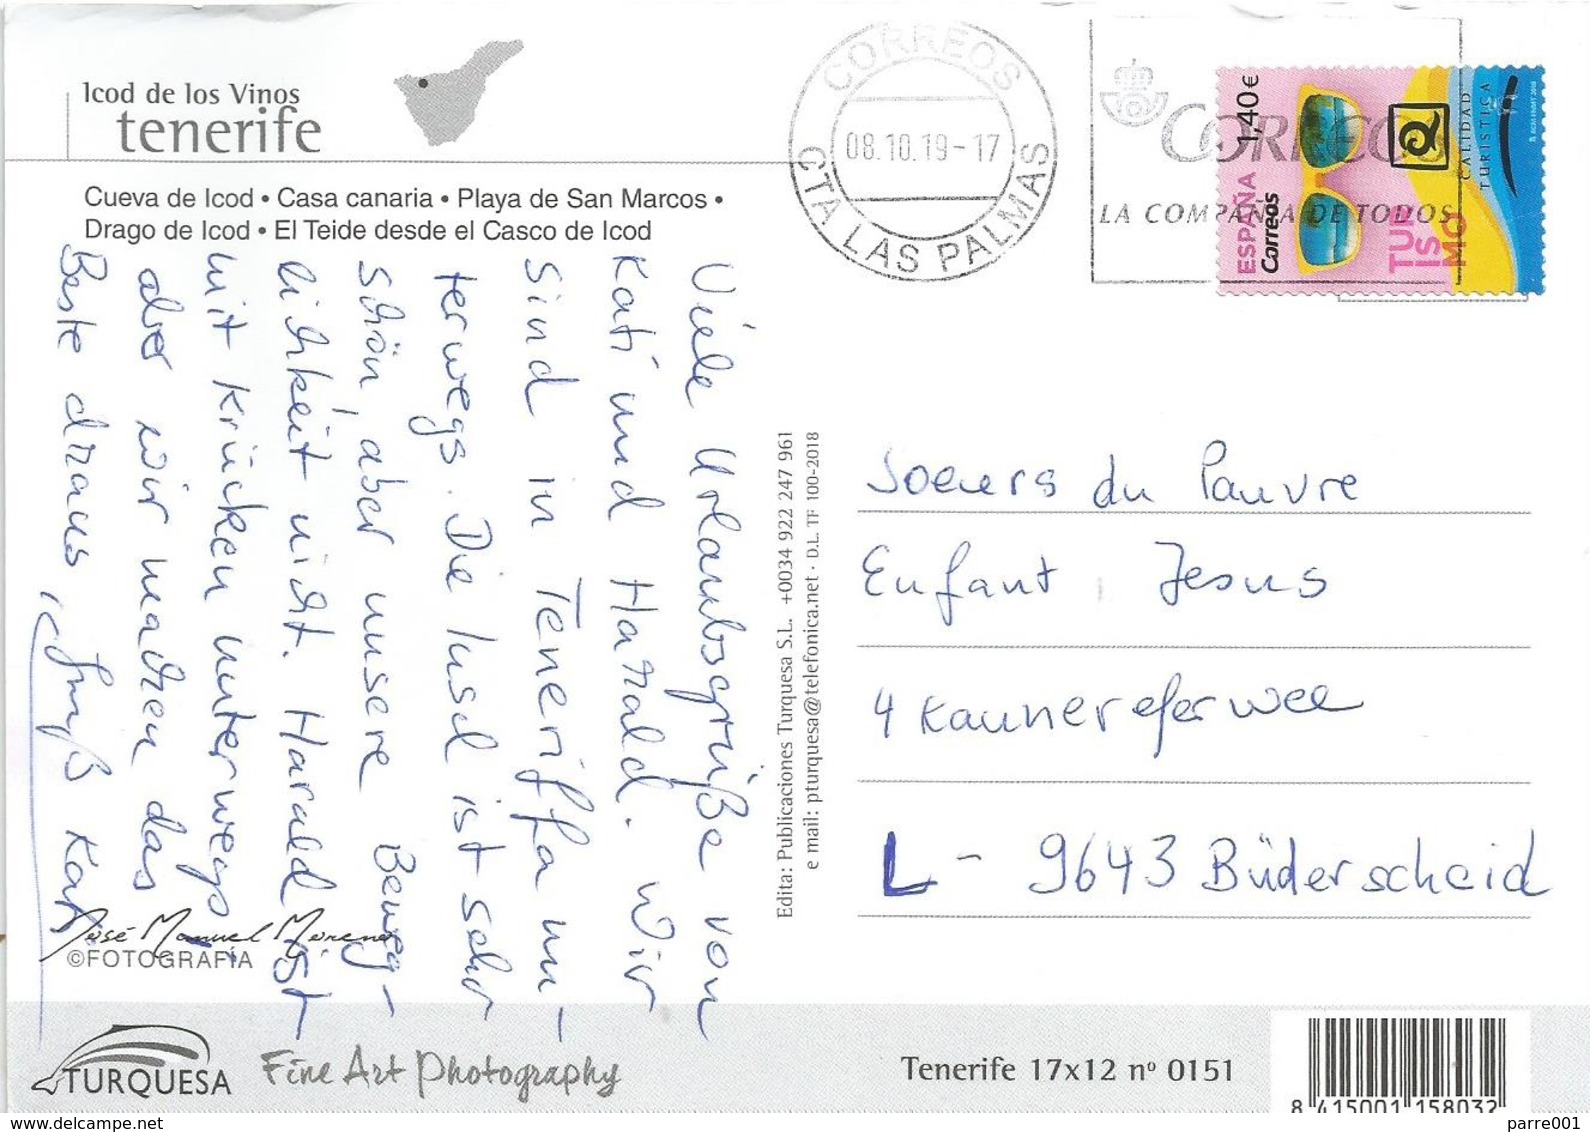 Icod de los Vinos
tenerife
Cueva de Icod • Casa canaria • Playa de San Marcos •
Drago de Icod • El Teide desde el Casco de Icod
CORREOS
08.10.19-17
CTA LAS PALMAS
CORREOS
LA COMPAÑIA DE TODOS
ESPAÑA 1,40€
Correos
TUR
IS
MO
Q
CALIDAD
TURISTICA
Viele Urlaubsgrüße von
Kati und Harald. Wir
sind in Teneriffa un-
terwegs. Die Insel ist sehr
schön, aber unsere Beweg-
lichkeit nicht. Harald ist
mit Krücken unterwegs,
aber wir machen das
Beste draus,
Gruß Kati
Edita: Publicaciones Turquesa S.L. +0034 922 247 961
e mail: pturquesa@telefonica.net · D.L. TF 100-2018
Soeurs du Pauvre
Enfant Jesus
4 Kaunereferwee
L - 9643 Büderscheid
José Manuel Moreno
©FOTOGRAFÍA
TURQUESA
Fine Art Photography
Tenerife 17x12 nº 0151
8 415001 158032
www.delcampe.net
parre001